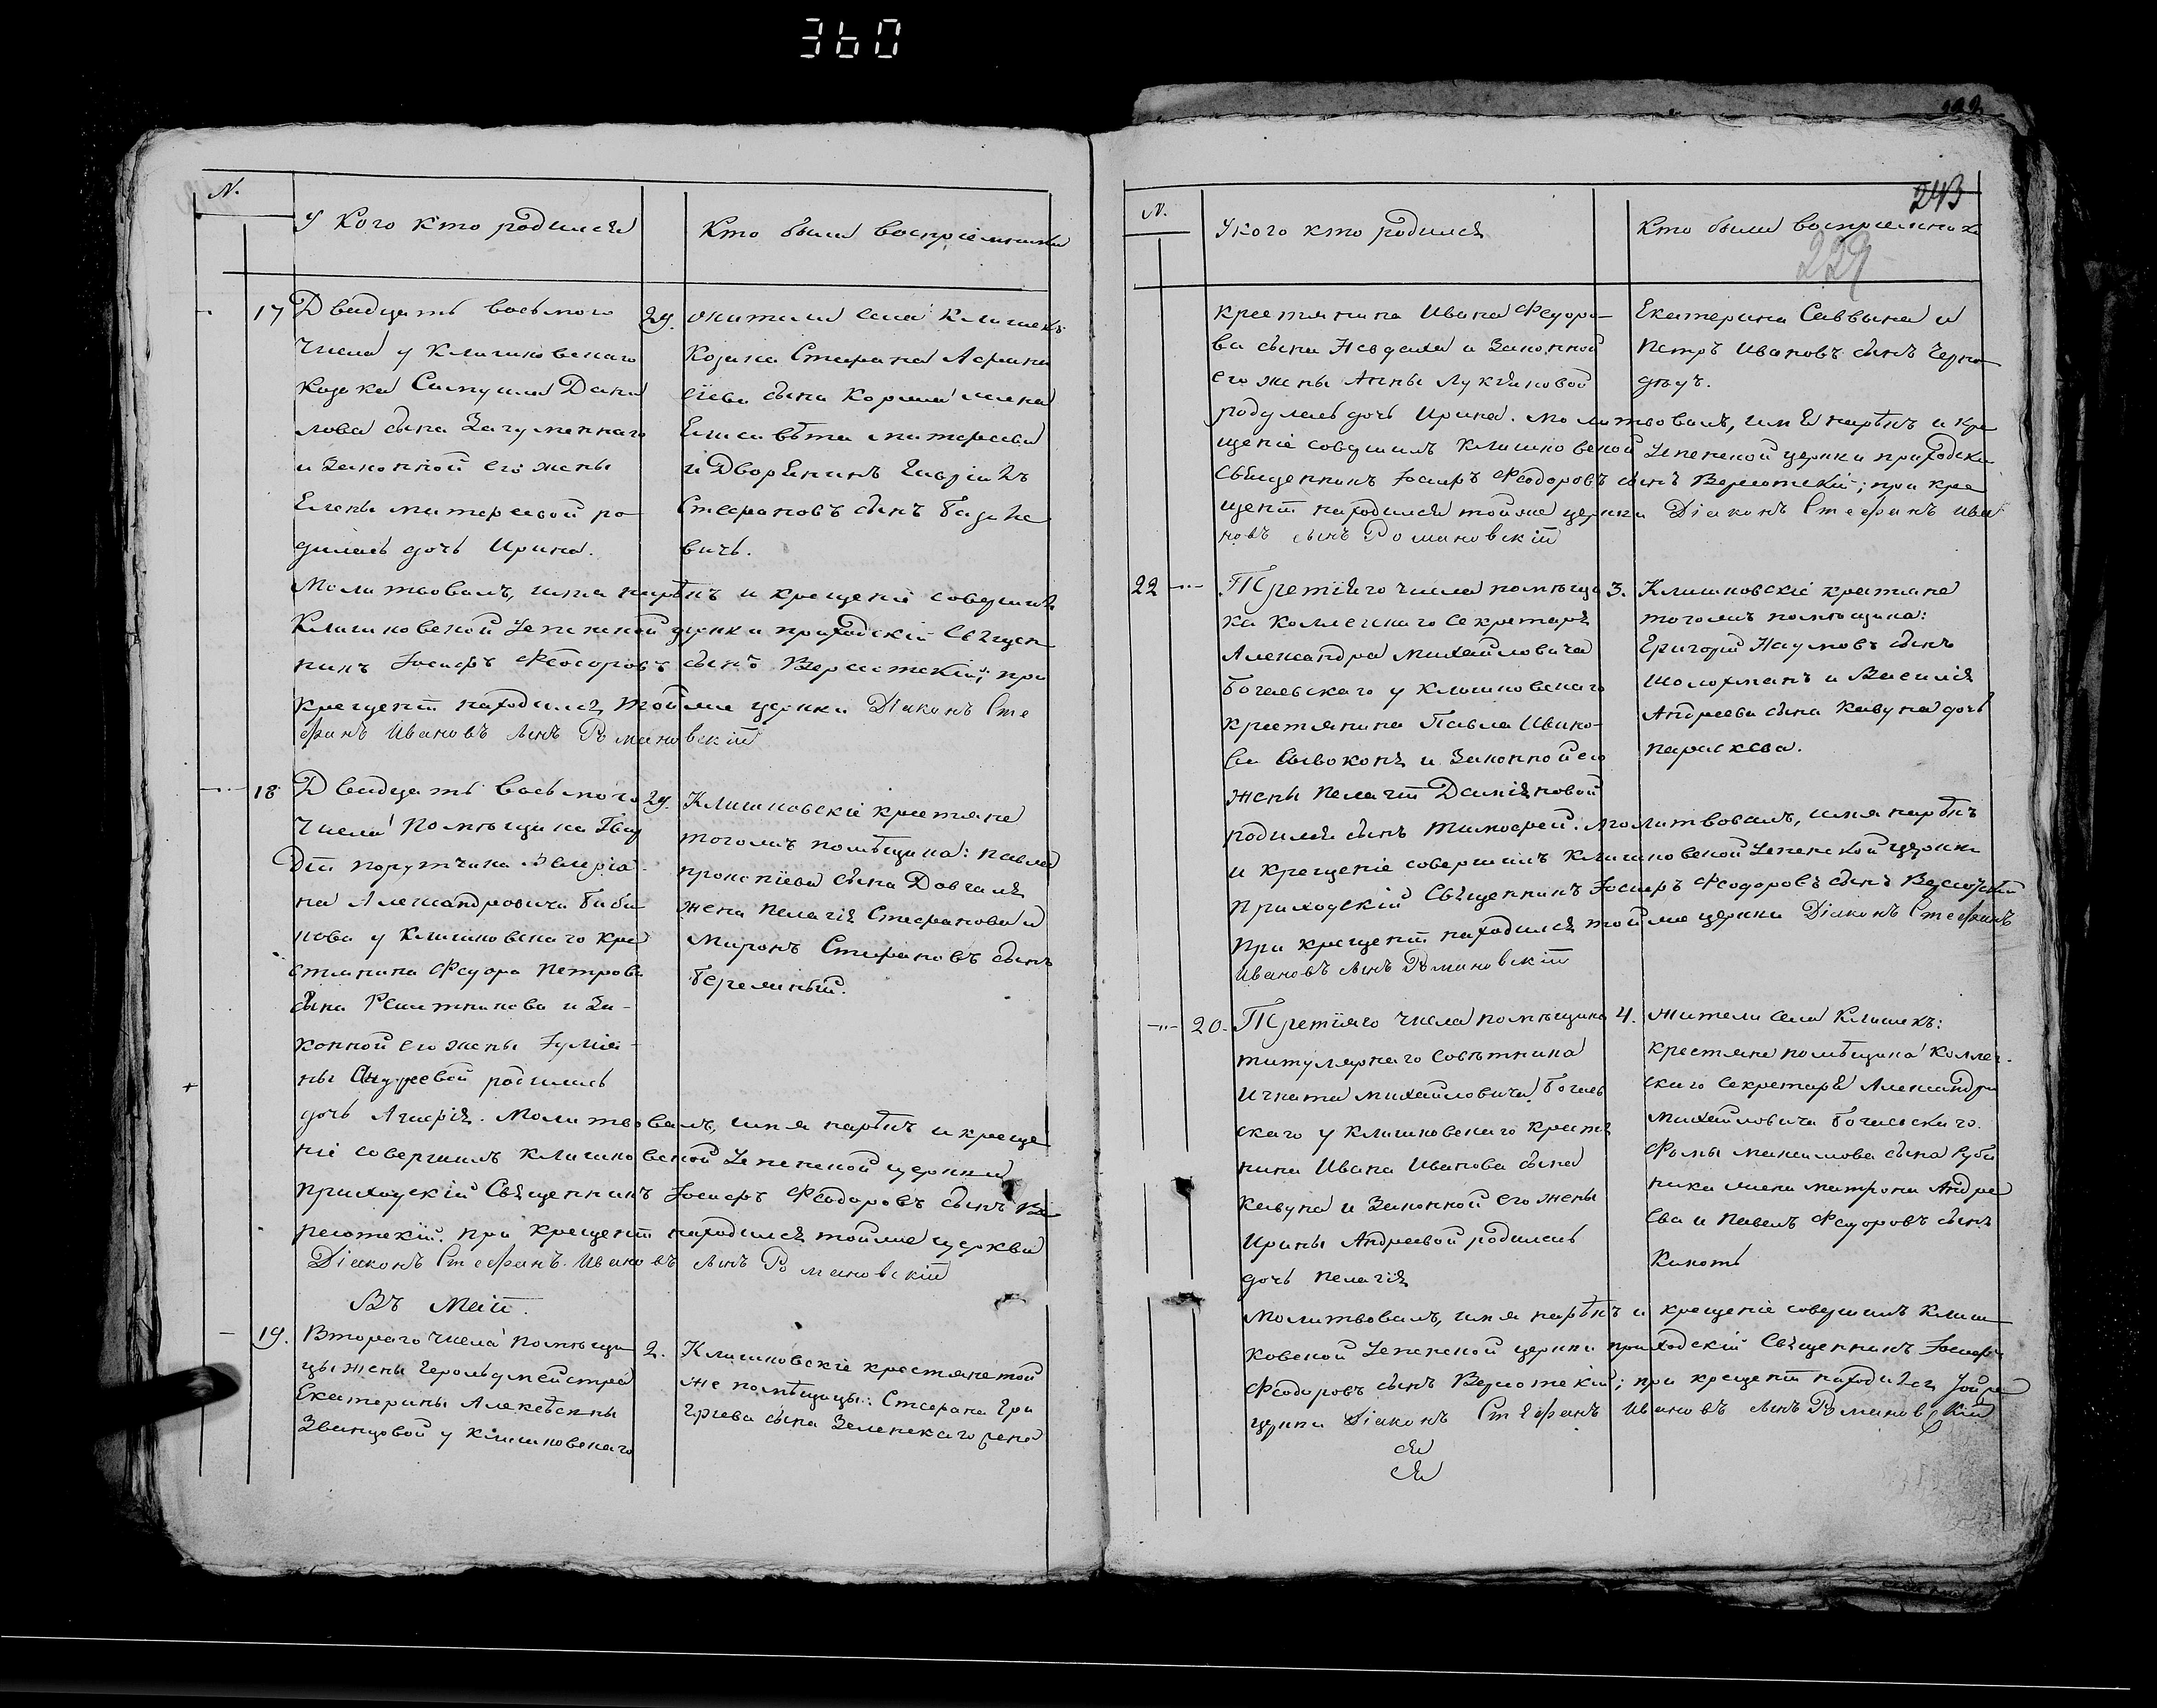 360
N.
У Кого кто родился
Кто были воспріемники
17
Двадцать восьмого
числа у Клишковскаго
козака Самуила Дани
лова сына Загуменнаго
и Законной его жены
Елены Матѳеевой ро
дилась дочь Ирина.
29.
жители села Клишекъ
Козака Стефана Аѳана
сіева сына жена
Елисавѣта Матѳеева
и Дворянинъ Гавріилъ
Стефановъ сынъ
вичь.
Молитвовалъ, имя нарѣкъ и крещеніе совершилъ
Клишковской Успенской церкви приходскій Священ
никъ Іосифъ Ѳеодоровъ сынъ при
крещеніи находился тойже церкви Діаконъ Сте
фанъ Ивановъ сынъ Романовскій
18
Двадцать восьмого
числа Помѣщика Гвар
діи порутчика Валеріа
на Александровича Биби
кова у Клишковскаго кре
стьянина Феодора Петрова
сына Решетникова и За-
конной его жены Іуліа-
ны Андреевой родилась
29.
Клишковскіе крестьяне
тогожъ помѣщика: Павла
Прокопіева сына Довгаля
жена Пелагія Стефанова и
Миронъ Стефановъ сынъ
дочь Агафія. Молитвовалъ, имя нарѣкъ и креще
ніе совершилъ Клишковской Успенской церкви
приходскій Священникъ Іосифъ Ѳеодоровъ сынъ Ве
при крещеніи находился тойже церкви
Діаконъ Стефанъ Ивановъ сынъ Романовскій
Въ Маіи.
19.
Второго числа помѣщи
цы жены Герольдмейстра
Екатерины Алексѣевны
Званцовой у Клишковскаго
2.
Клишковскіе крестьяне той
же помѣщицы: Стефана Гри
горіева сына Зеленскаго жена
243
229
N.
У кого кто родился
Кто были воспріемники
крестьянина Ивана Феодоро-
ва сына и Законной
его жены Анны Лукіяновой
Екатерина Саввына и
Петръ Ивановъ сынъ Черно
родилась дочь Ирина. Молитвовалъ, имя нарѣкъ и кре
щеніе совершилъ Клишковской Успенской церкви приходскій
Священникъ Іосифъ Ѳеодоровъ сынъ при кре
щеніи находился тойже церкви Діаконъ Стефанъ Ива
новъ сынъ Романовскій
22
Третіяго числа помѣщи
ка коллежскаго Секретаря
Александра Михайловича
Богаевскаго у Клишковскаго
крестьянина Павла Ивано-
ва Сывоконя и Законной его
жены Пелагіи Даміяновой
3.
Клишковскіе крестьяне
тогожъ помѣщика:
Григорій Наумовъ сынъ
и Василія
Андреева сына Кавуна дочь
Параскева.
родился сынъ Тимоѳей. Молитвовалъ, имя нарѣкъ
и крещеніе совершилъ Клишковской Успенской церкви
Приходскій Священникъ Іосифъ Ѳеодоровъ сынъ
при крещеніи находился тойже церкви Діаконъ Стефанъ
Ивановъ сынъ Романовскій
20.
Третіяго числа помѣщика
титулярнаго Совѣтника
Игната Михайловича Богаев
скаго у Клишковскаго крестья
нина Ивана Иванова сына
Кавуна и Законной его жены
Ирины Андреевой родилась
дочь Пелагія
4.
Жители села Клишекъ:
крестьяне помѣщика Коллеж
скаго Секретаря Александра
Михайловича Богаевскаго.
Фомы Максимова сына
жена Матрона Андре
ева и Павелъ Феодоровъ сынъ
Молитвовалъ, имя нарѣкъ и крещеніе совершилъ Клиш
ковской Успенской церкви приходскій Священникъ Іосифъ
Ѳеодоровъ сынъ при крещеніи находился тойже
церкви Діаконъ Стефанъ Ивановъ сынъ Романовскій